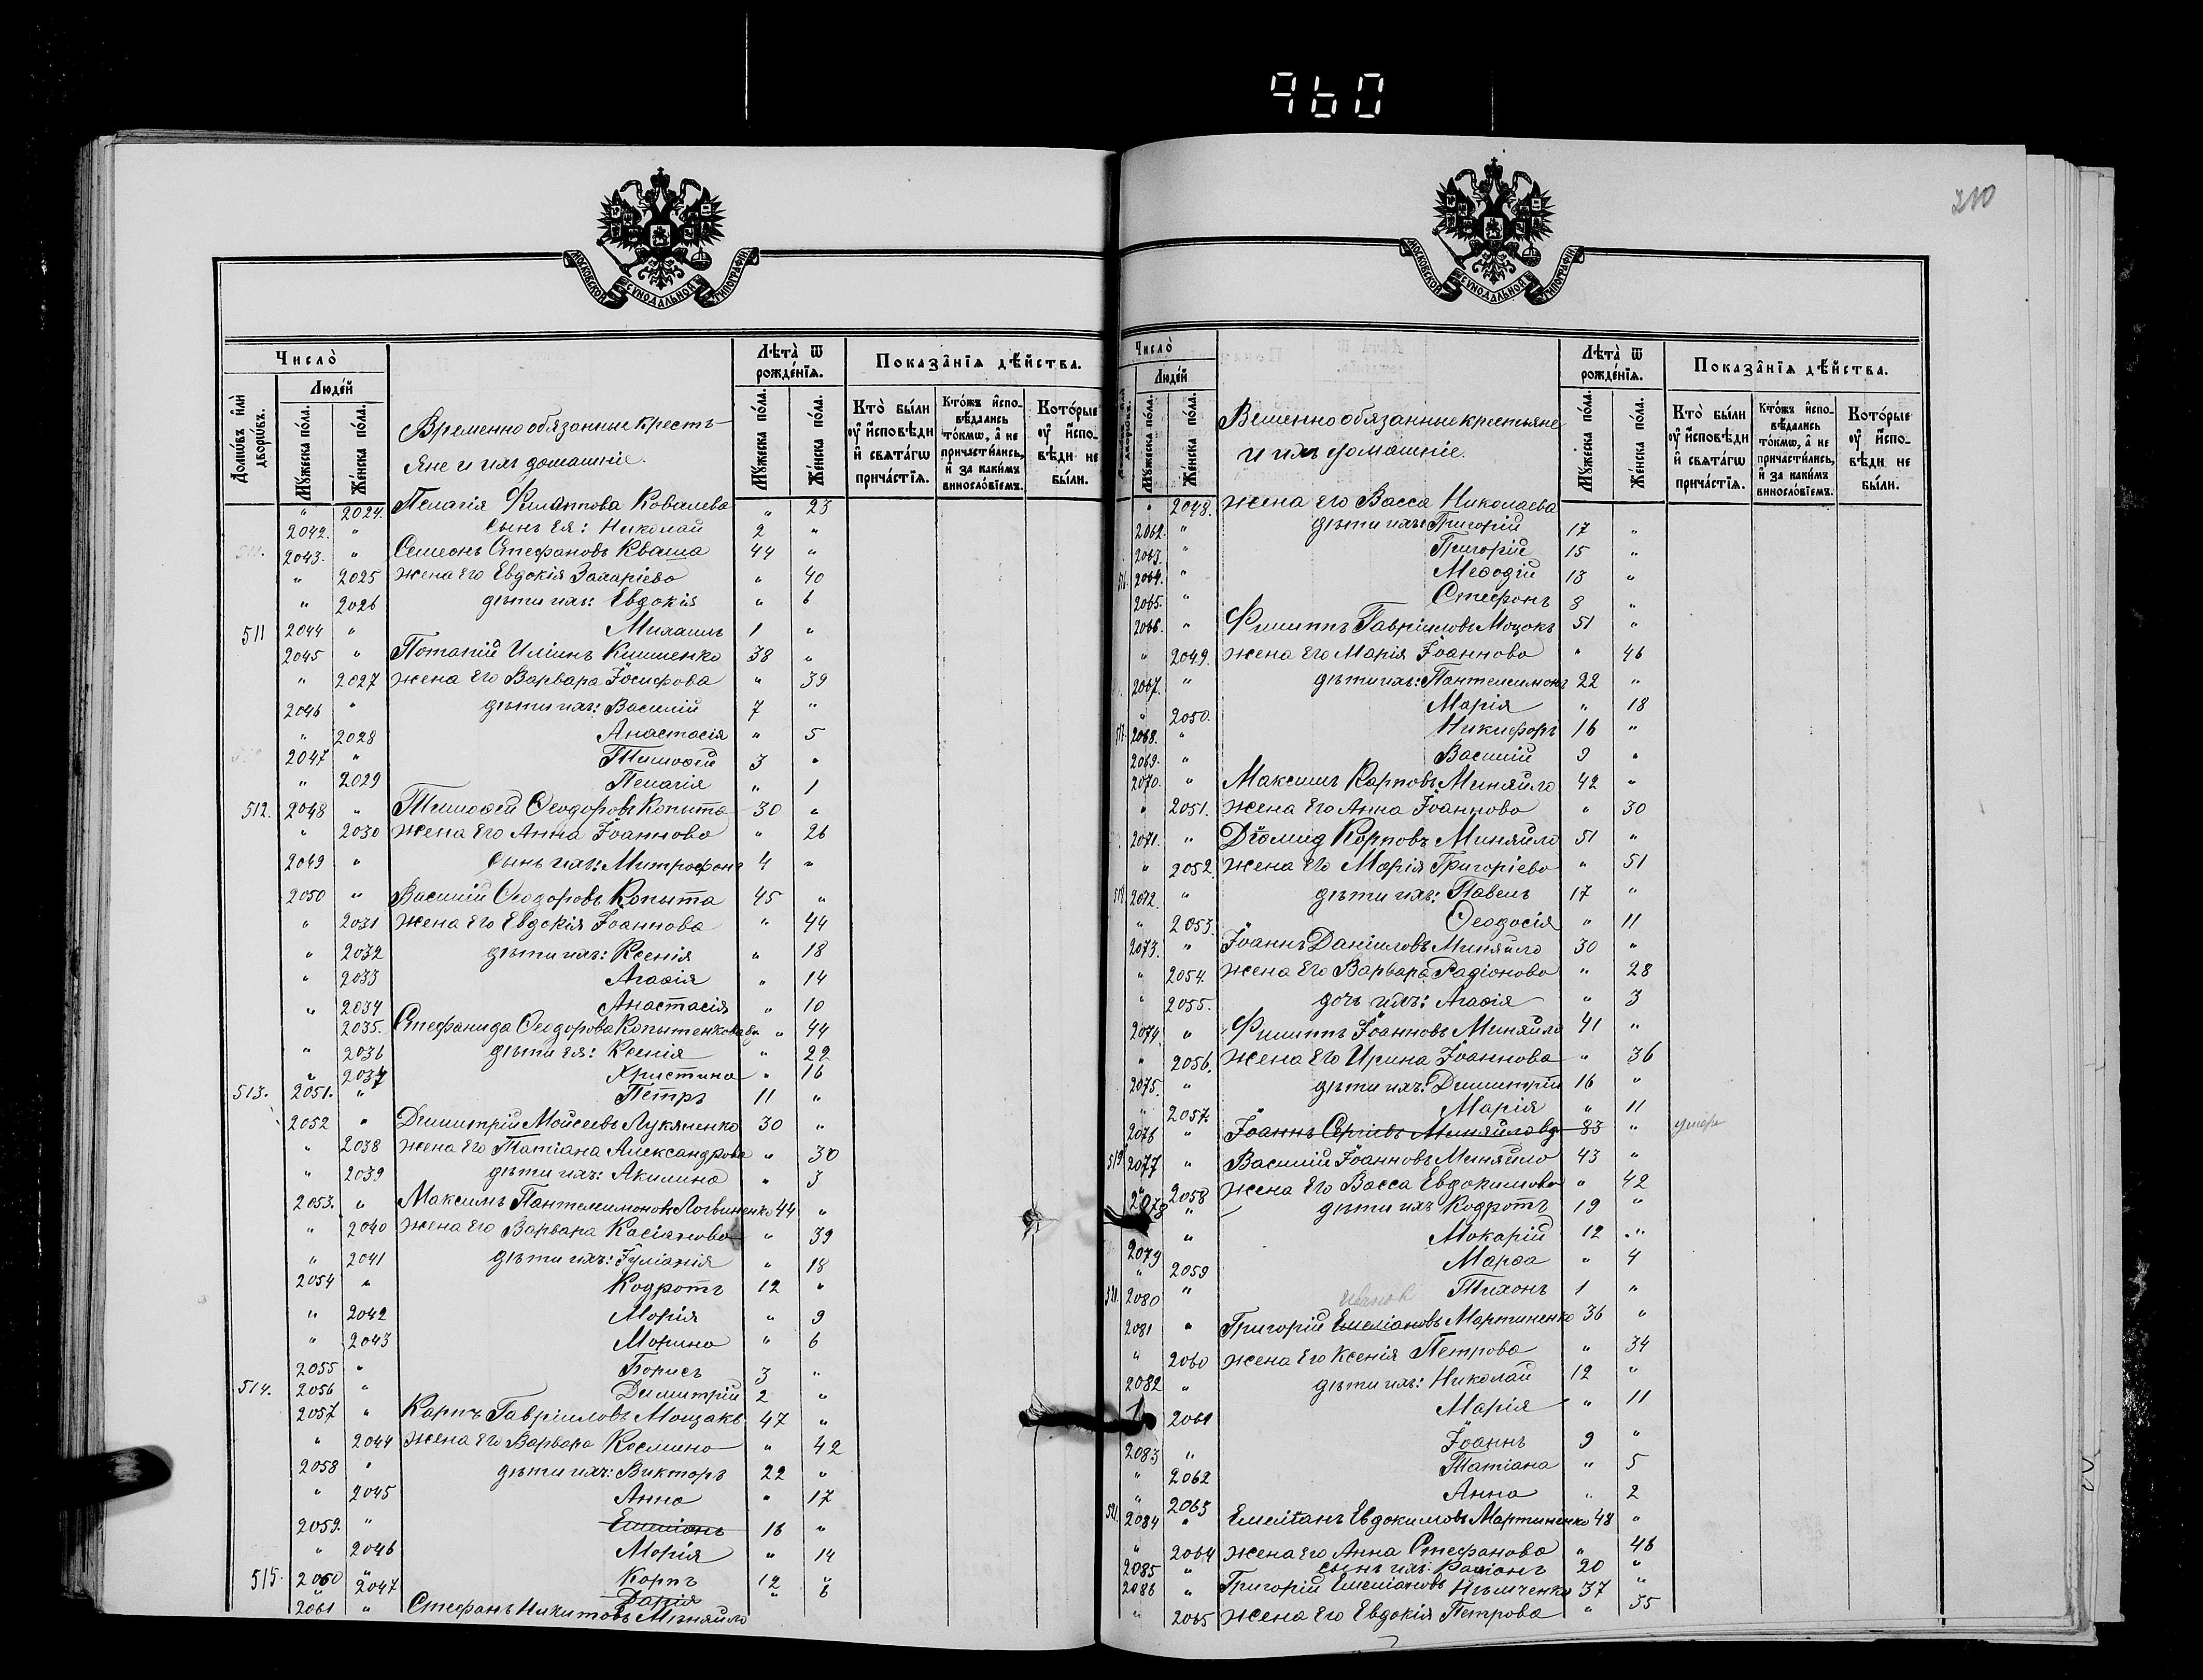 960
210
МОСКОВСКОЙ СѴНОДАЛЬНОЙ ТИПОГРАФІИ.
Число̀
Людей
Домѡ́въ и҆лѝ дворѡ́въ.
Мꙋ́жеска по́ла.
Же́нска по́ла.
Временно обязанные кресть-
яне и ихъ домашніе.
Лѣта̀ ѿ рожде́нїѧ.
Мꙋ́жеска по́ла.
Же́нска по́ла.
Показа̂нїѧ дѣ́йства.
Кто̀ бы́ли ᲂу҆ и҆сповѣди и҆ свѧта́гѡ прича́стїѧ.
Кто́жъ и҆спо-вѣдались то́кмѡ, а҆ не причасти́лись, и҆ за каки́мъ винословїемъ.
Кото́рые ᲂу҆ и҆спо-вѣди не бы́ли.
" 2024. Пелагія Филиппова Ковалева " 23
2042. " сынъ ея: Николай 2 "
2043. " Семеонъ Стефановъ Кваша 44 "
" 2025 жена его Евдокія Захаріева " 40
" 2026 дѣти ихъ: Евдокія " 6
511 2044 " Михаилъ 1 "
2045 " Потапій Иліинъ Клименко 38 "
" 2027 жена его Варвара Іосифова " 39
2046 " дѣти ихъ: Василій 7 "
" 2028 Анастасія " 5
2047 " Тимоѳей 3 "
" 2029 Пелагія " 1
512. 2048 " Тимоѳей Ѳеодоровъ Копыта 30 "
" 2030 жена его Анна Іоаннова " 26
2049 " сынъ ихъ: Митрофанъ 4 "
2050 " Василій Ѳеодоровъ Копыта 45 "
" 2031 жена его Евдокія Іоаннова " 44
" 2032 дѣти ихъ: Ксенія " 18
" 2033 Агаѳія " 14
" 2034 Анастасія " 10
2035. Стефанида Ѳеодорова Копытенкова вд. " 44
" 2036 дѣти ея: Ксенія " 22
" 2037 Христина " 16
513. 2051. " Петръ 11 "
2052 " Димитрій Мойсеевъ Лукяненко 30 "
" 2038 жена его Татіана Александрова " 30
" 2039 дѣти ихъ: Акилина " 3
2053. " Максимъ Пантелеимоновъ Логвиненко 44 "
" 2040 жена его Варвара Касіянова " 39
" 2041 дѣти ихъ: Іуліанія " 18
2054 " Кодротъ 12 "
" 2042 Марія " 9
" 2043 Марина " 6
2055 " Борисъ 3 "
514. 2056 " Димитрій 2 "
2057 " Карпъ Гавріиловъ Моцакъ 47 "
" 2044 жена его Варвара Космина " 42
2058 " дѣти ихъ: Викторъ 22 "
" 2045 Анна " 17
2059. " Емеліанъ 16 "
" 2046 Марія " 14
515. 2060 " Карпъ 12 "
" 2047 Дарія " 6
2061 " Стефанъ Никитовъ Миняйло
Число̀
Людей
Мꙋ́жеска по́ла.
Же́нска по́ла.
Веменно обязанные крестьяне
и ихъ домашніе.
Лѣта̀ ѿ рожде́нїѧ.
Мꙋ́жеска по́ла.
Же́нска по́ла.
Показа̂нїѧ дѣ́йства.
Кто̀ бы́ли ᲂу҆ и҆сповѣди и҆ свѧта́гѡ прича́стїѧ.
Кто́жъ и҆спо-вѣдались то́кмѡ, а҆ не причасти́лись, и҆ за каки́мъ винословїемъ.
Кото́рые ᲂу҆ и҆спо-вѣди не бы́ли.
" 2048. жена его Васса Николаева
2062. " дѣти ихъ: Григорій 17 "
2063. " Григорій 15 "
516. 2064. " Меѳодій 13 "
2065. " Стефанъ 8 "
2066. " Филиппъ Гавріиловъ Моцокъ 51 "
" 2049. жена его Марія Іоаннова " 46
2067. " дѣти ихъ: Пантелеимонъ 22 "
" 2050. Марія " 18
517. 2068. " Никифоръ 16 "
2069. " Василій 9 "
2070. " Максимъ Карповъ Миняйло 42 "
" 2051. жена его Анна Іоаннова " 30
2071. " Діомид Карповъ Миняйло 51 "
" 2052 жена его Марія Григоріева " 51
518. 2072. " дѣти ихъ: Павелъ 17 "
" 2053. Ѳеодосія " 11
2073. " Іоаннъ Даніиловъ Миняйло 30 "
" 2054. жена его Варвара Радіонова " 28
" 2055. дочь ихъ: Агаѳія " 3
2074. " Филиппъ Іоанновъ Миняйло 41 "
" 2056. жена его Ирина Іоаннова " 36
2075. " дѣти ихъ: Димитрій 16 "
" 2057. Марія " 11
2076 " Іоаннъ Сергіевъ Миняйло вд 83 " умеръ
519 2077 " Василій Іоанновъ Миняйло 43 "
" 2058 жена его Васса Евдокимова " 42
2078 " дѣти ихъ Кодротъ 19 "
2079 " Мокарій 12 "
" 2059 Марѳа " 4
2080 " Тихонъ 1 "
2081 " Григорій Емеліановъ Мартиненко 36 "
" 2060 жена его Ксенія Петрова " 34
2082 " дѣти ихъ: Николай 12 "
2061 Марія " 11
2083 " Іоаннъ 9 "
" 2062 Татіана " 5
" 2063 Анна " 2
521. 2084 " Емеліанъ Евдокимовъ Мартиненко 48 "
" 2064 жена его Анна Стефанова " 46
2085 " сынъ ихъ: 20 "
2086 " Григорій Емеліановъ Нѣмченко 37 "
" 2065 жена его Евдокія Петрова " 35